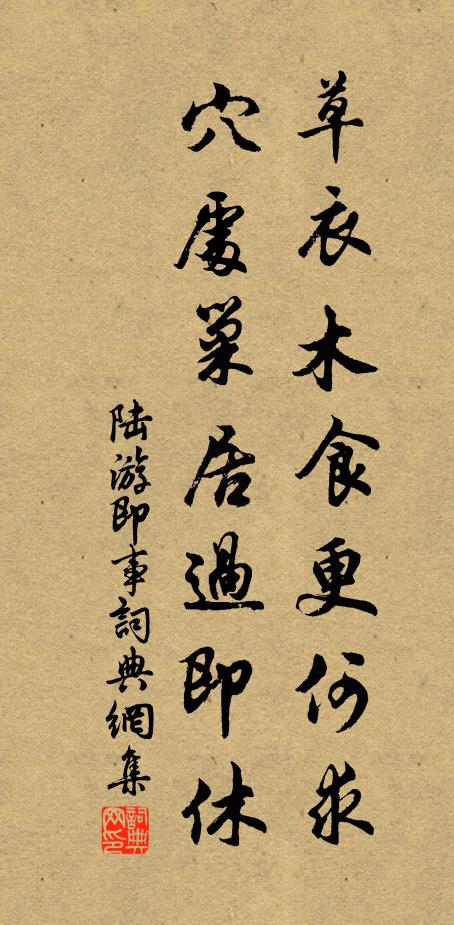 草衣木食更何求
穴處巢居過即休
陆游即事詞典網集
詞典网印